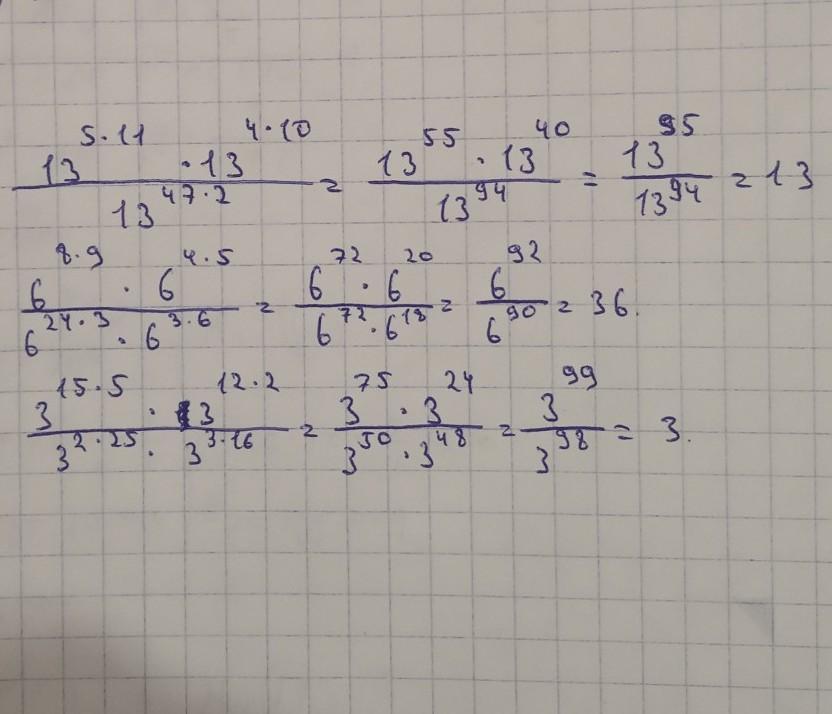 13^{5·11} · 13^{4·10} / 13^{47·2} = 13^{55} · 13^{40} / 13^{94} = 13^{95} / 13^{94} = 13
6^{8·9} · 6^{4·5} / 6^{24·3} · 6^{3·6} = 6^{72} · 6^{20} / 6^{72} · 6^{18} = 6^{92} / 6^{90} = 36.
3^{15·5} · 3^{12·2} / 3^{2·25} · 3^{3·16} = 3^{75} · 3^{24} / 3^{50} · 3^{48} = 3^{99} / 3^{98} = 3.